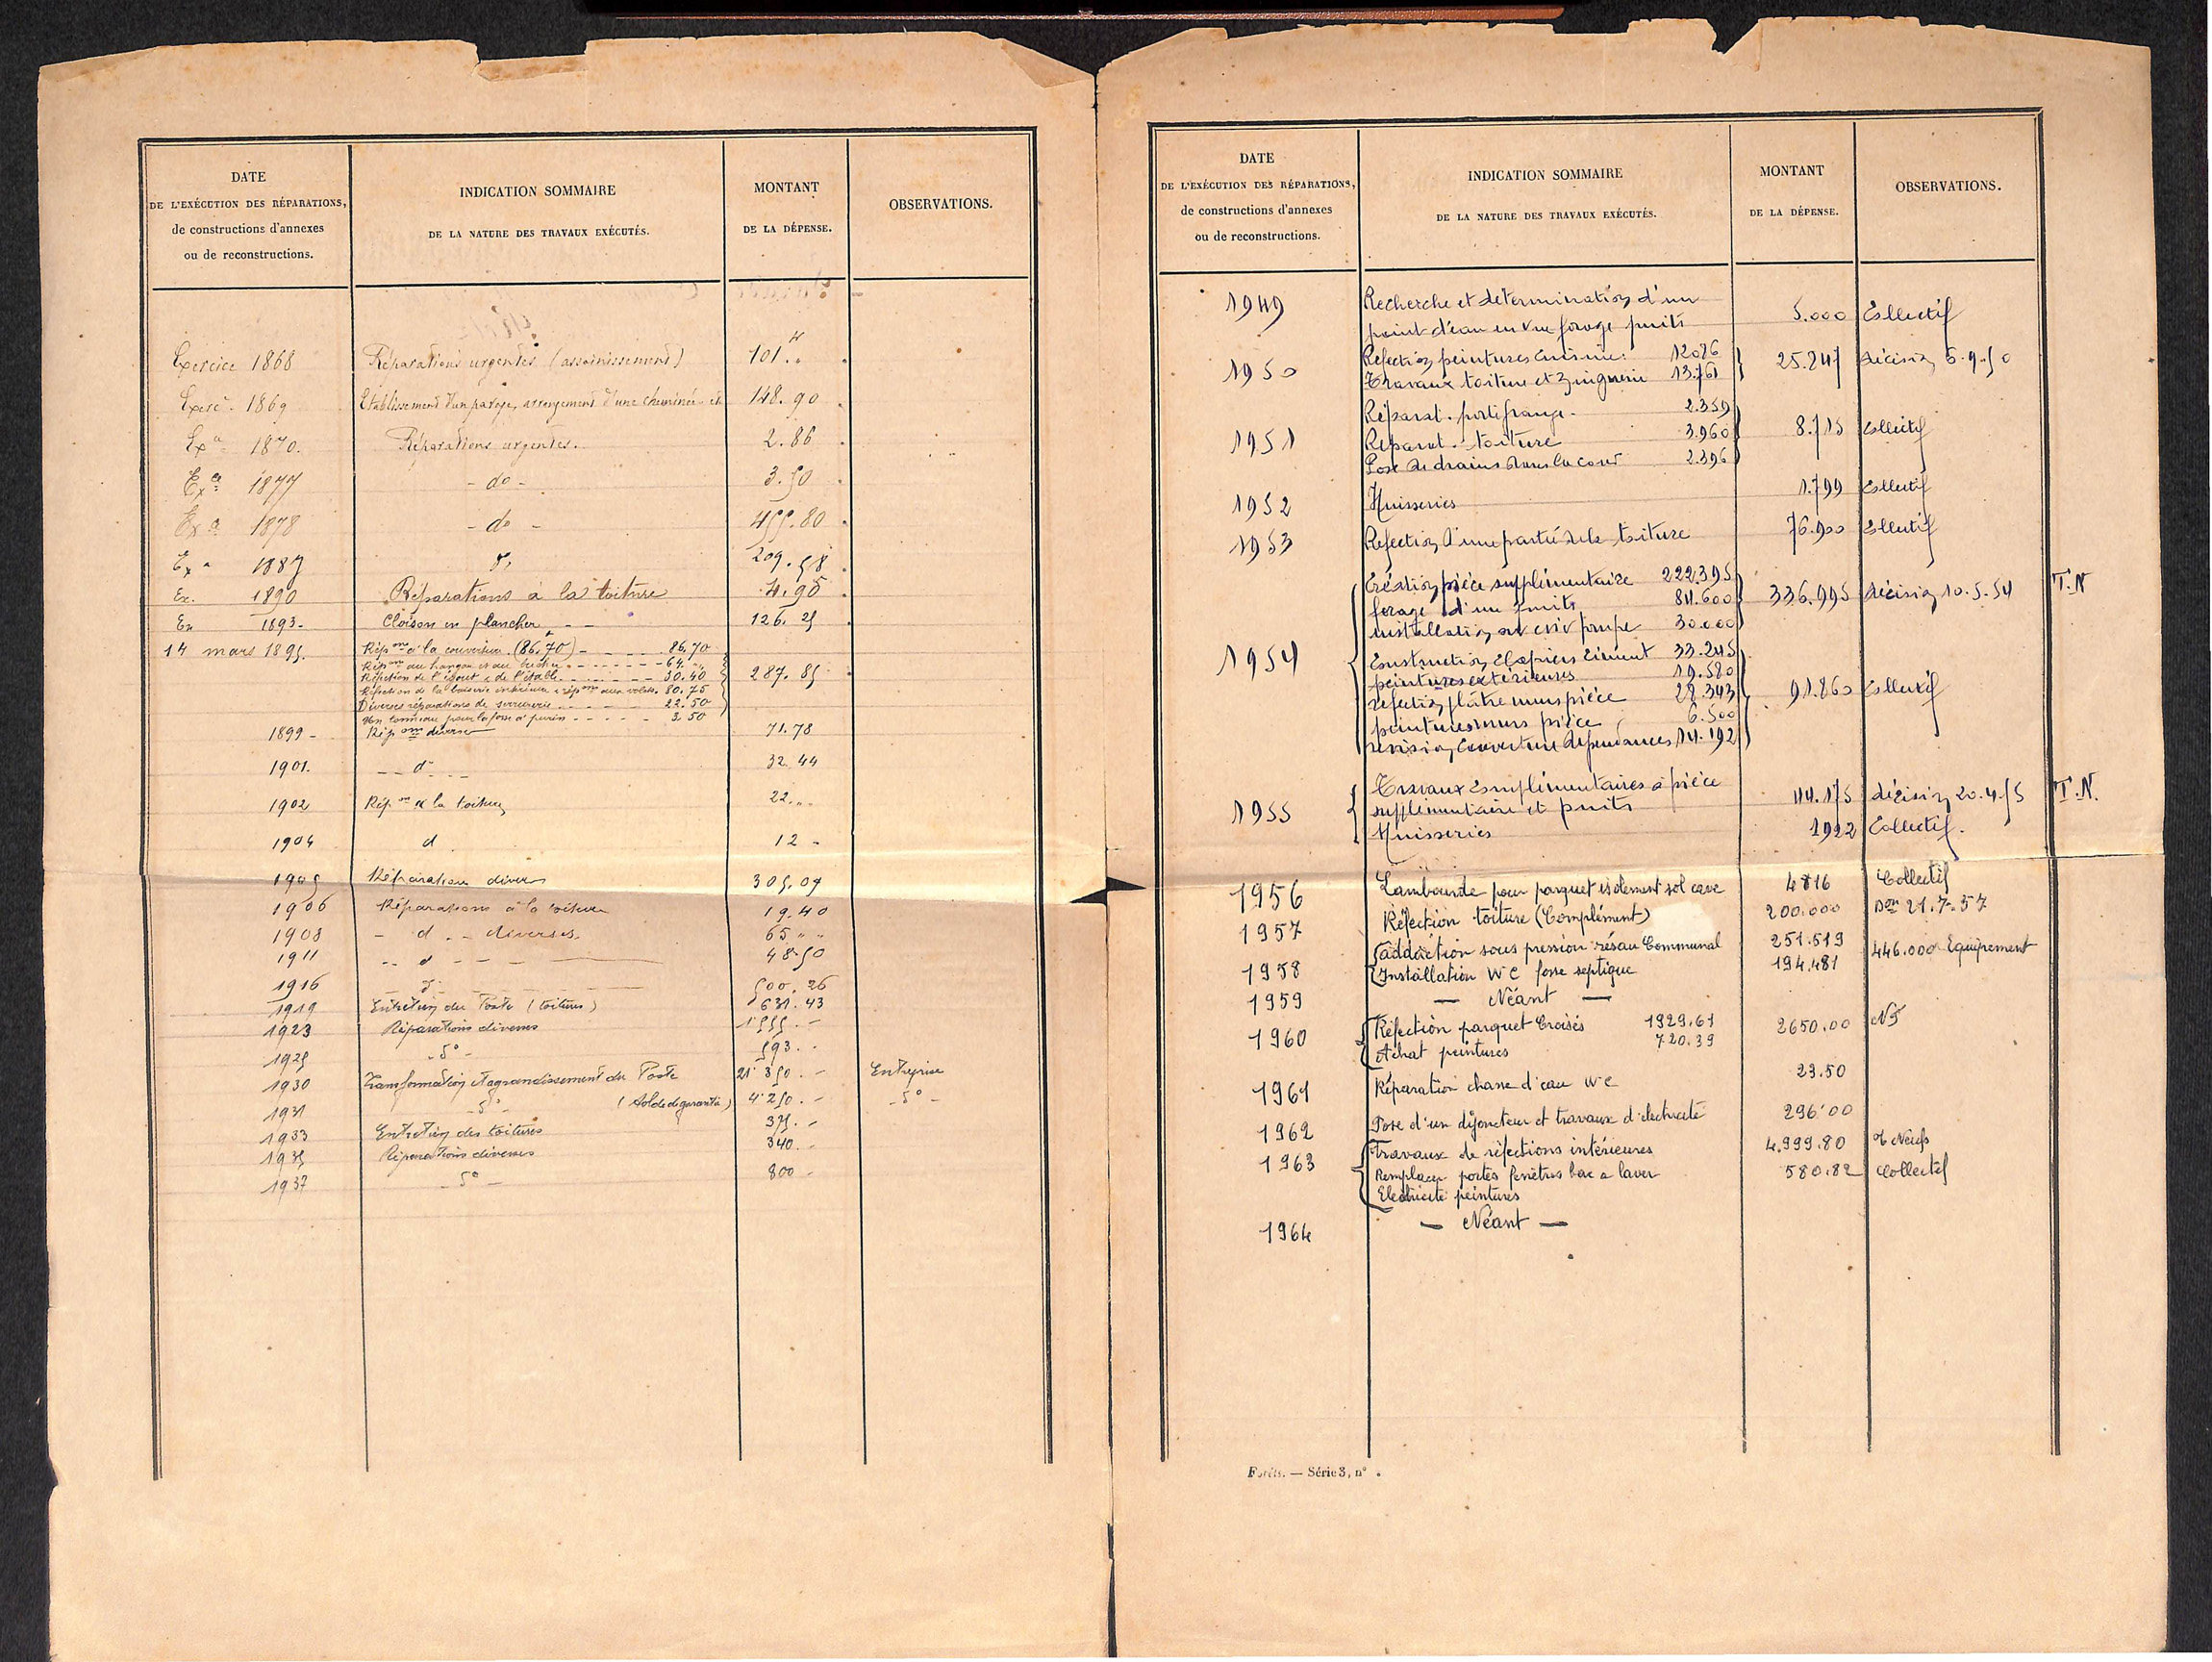 DATE
DE L'EXÉCUTION DES RÉPARATIONS,
de constructions d'annexes
ou de reconstructions.
INDICATION SOMMAIRE
DE LA NATURE DES TRAVAUX EXÉCUTÉS.
MONTANT
DE LA DÉPENSE.
OBSERVATIONS.
Exercice 1868 Réparations urgentes (assainissement) 101. "
Exerc. 1869 Etablissement d'un pavage, arrangement d'une cheminée etc 148.90
Exce 1870. Réparations urgentes. 2.86
Exce 1877 - do - 3.50
Exce 1878 - do - 455.80
Exce 1887 do 209.58
Ex. 1890 Réparations à la toiture 4.95
Ex 1893 - Cloison en plancher - - 126.25
14 mars 1895. Répons à la couverture (86,70) - 86,70
Répons au hangar et au bûcher - 64. "
Réfection de l'égout & de l'étable - 30.40 287.85
Réfection de la boiserie intérieure & répons aux volets. 80.75
Diverses réparations de serrurerie - 22.50
Un tonneau pour la fosse à purin - 3.50
1899 - Répons diverses 71.78
1901. - do - 32.44
1902 Répon à la toiture 22. "
1904 d 12 -
1905 Réparations divers 305.07
1906 Réparations à la toiture 19.40
1908 - d - diverses 65 " "
1911 - d - - 48.50
1916 - d - 500.26
1919 Entretien du Poste (toitures) 631.43
1923 Réparations diverses 1'555. -
1925 - do - 593. -
1930 Transformation et agrandissement du Poste 21'350. - Entreprise
1931 - do - (Solde de garantie) 4'250. - - do -
1933 Entretien des toitures 375. -
1935 Réparations diverses 340. -
1937 - do - 800 -
DATE
DE L'EXÉCUTION DES RÉPARATIONS,
de constructions d'annexes
ou de reconstructions.
INDICATION SOMMAIRE
DE LA NATURE DES TRAVAUX EXÉCUTÉS.
MONTANT
DE LA DÉPENSE.
OBSERVATIONS.
1949 Recherche et détermination d'un
point d'eau en vue forage puits 5.000 Collectif
1950 Refection peintures cuisine: 12086
Travaux toiture et zinguerie 13.761 25.847 décision 6.9.50
Réparat. porte grange. 2.359
1951 Réparat. toiture 3.960 8.715 Collectif
Pose de drains dans la cour 2.396
1952 Huisseries 1.799 Collectif
1953 Refection d'une partie de la toiture 76.900 Collectif
Création pièce supplémentaire 222.395
forage d'un puits 84.600 336.995 décision 10.5.54 T.N
installation pompe 30.000
1954 Construction Clapiers Ciment 33.245
peintures extérieures 19.580
refection plâtre murs pièce 28.343 91.860 Collectif
peintures murs pièce 6.500
révision couverture dépendances 14.192
Travaux Complémentaires à pièce
1955 supplémentaire et puits 114.175 décision 20.4.55 T.N.
Huisseries 1922 Collectif.
1956 Lambourde pour parquet isolement sol cave 4816 Collectif
1957 Réfection toiture (Complément) 200.000 Don 21.7.57
adduction sous pression résau Communal 251.519
1958 Installation WC fosse septique 194.481 446.000 Equipement
1959 — Néant —
1960 Réfection parquet Croisés 1929.61 2650.00 NF
Achat peintures 720.39
1961 Réparation chasse d'eau WC 23.50
1962 Pose d'un disjoncteur et travaux d'électricité 296'00
1963 Travaux de réfections intérieures 4.999.80 Neufs
Remplacer portes fenêtres bac a laver 580.82 Collectif
Electricité peintures
1964 — Néant —
Forêts. — Série 3, n°